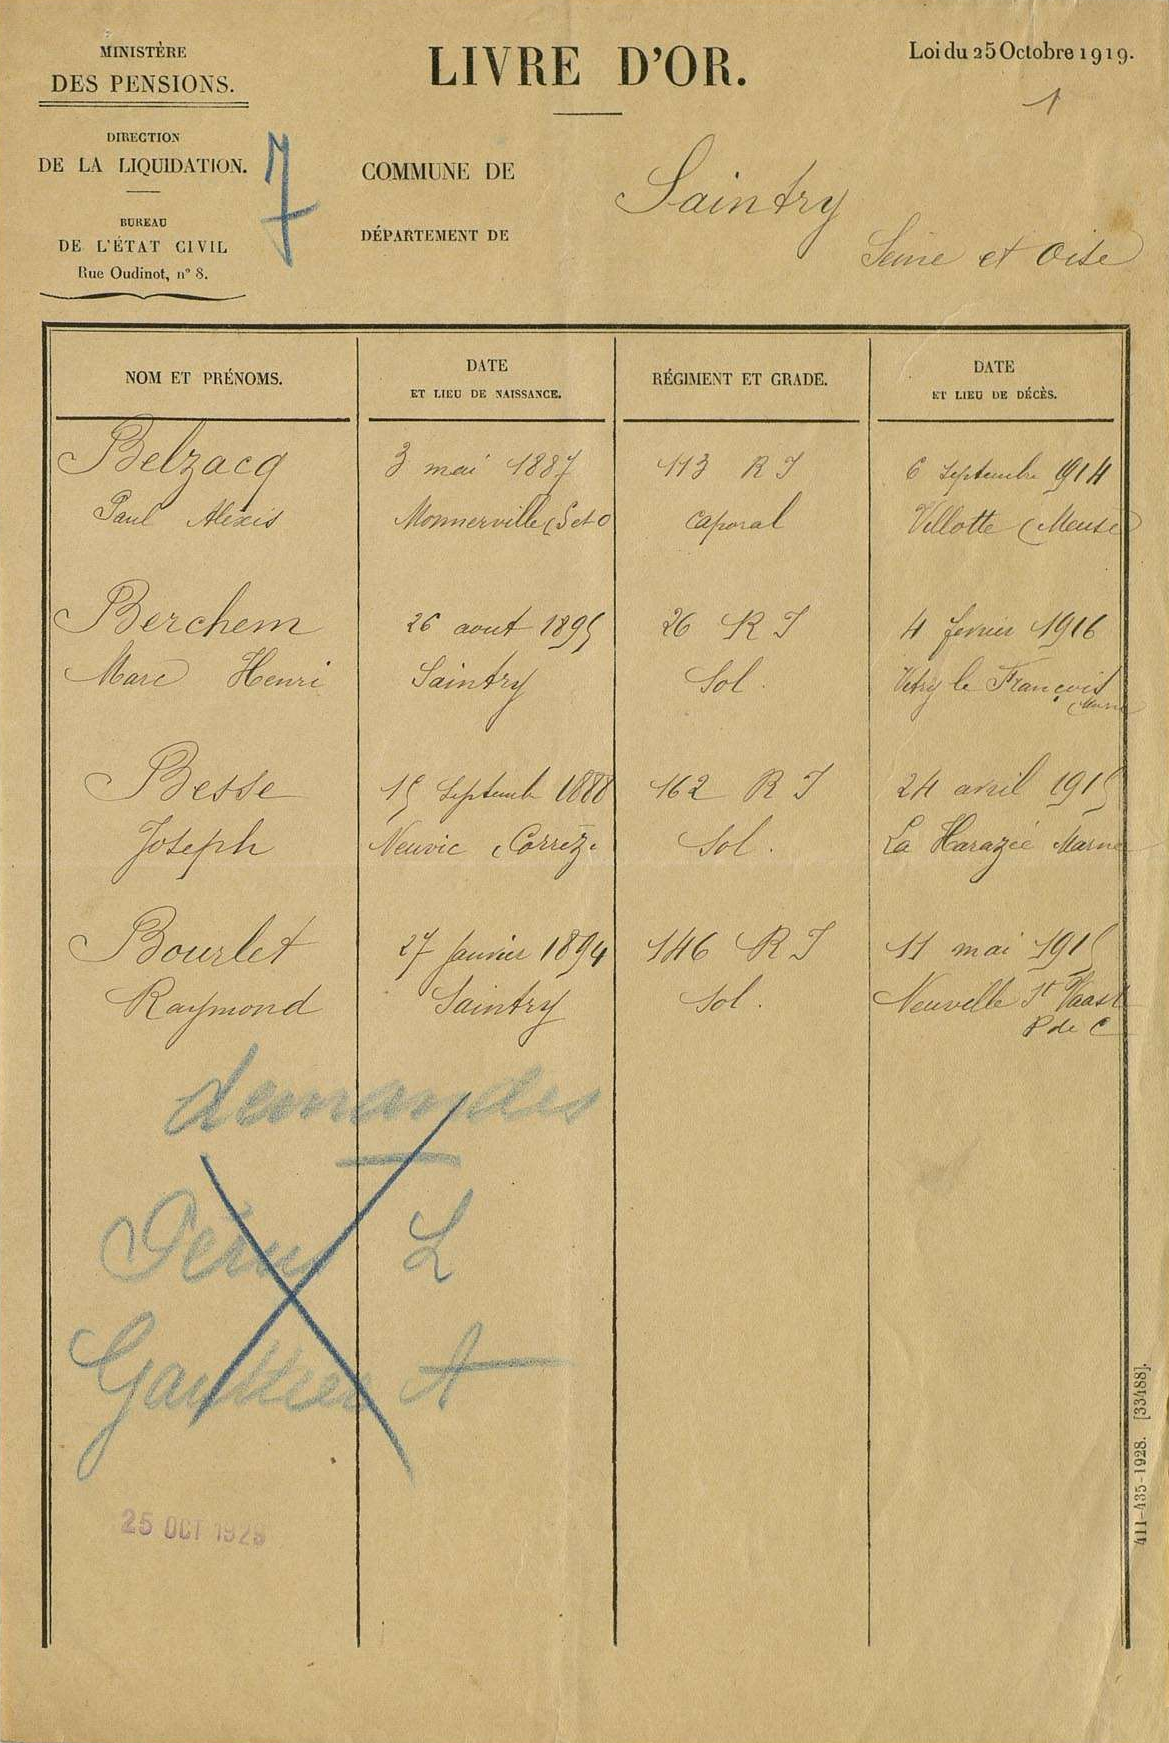 MINISTÈRE
DES PENSIONS.
DIRECTION
DE LA LIQUIDATION.
BUREAU
DE L'ÉTAT CIVIL
Rue Oudinot, n° 8.
7
LIVRE D'OR.
Loi du 25 Octobre 1919.
1
COMMUNE DE Saintry
DÉPARTEMENT DE Seine et Oise
NOM ET PRÉNOMS. DATE ET LIEU DE NAISSANCE. RÉGIMENT ET GRADE. DATE ET LIEU DE DÉCÈS.
Belzacq 3 mai 1887 113 R I 6 Septembre 1914
Paul Alexis Monnerville (S et O caporal Villotte (Meuse
Berchem 26 aout 1895 26 R I 4 fevrier 1916
Marc Henri Saintry Sol. Vitry le François
(Marne
Besse 15 Septemb 1888 162 R I 24 avril 1915
Joseph Neuvic (Corrèze Sol. La Harazée Marne
Bourlet 27 Janvier 1894 146 R I 11 mai 1915
Raymond Saintry Sol. Neuville St Vaast
P de C
demandes
L
Gauthier A
25 OCT 192
411-435-1928. [33488].